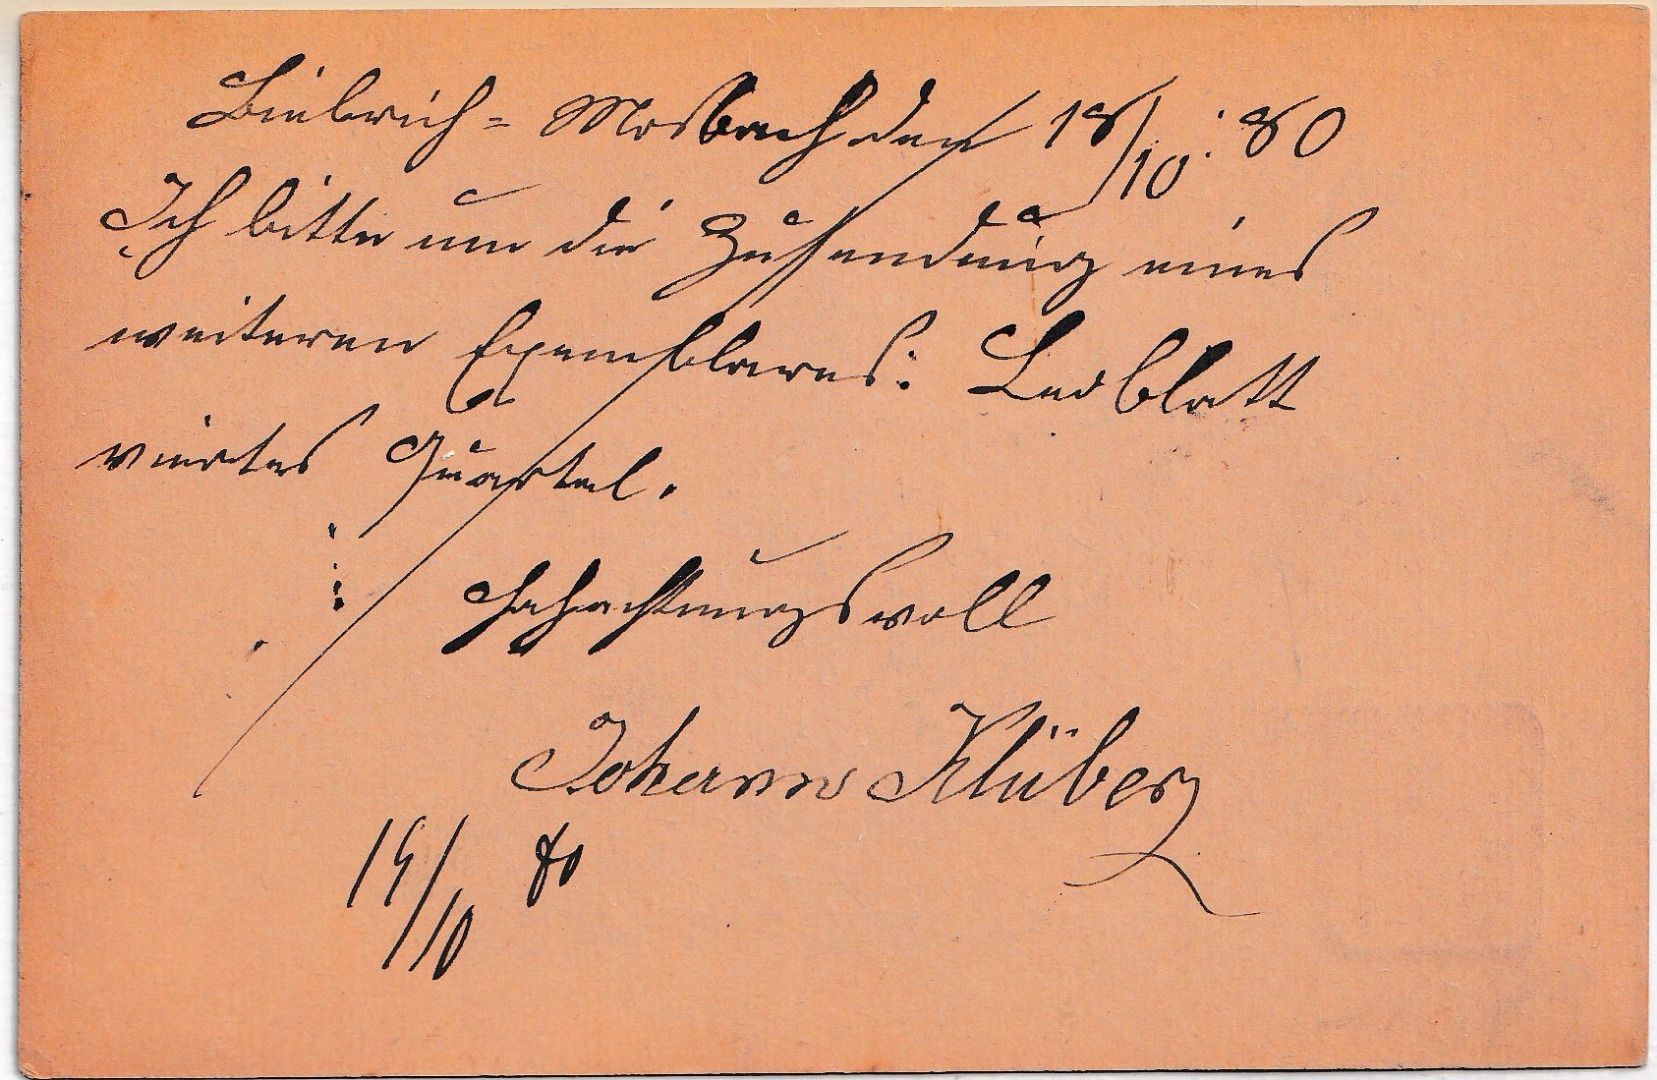 Biebrich = Mosbach den 18/10. 80
Ich bitte um die Zusendung eines
weiteren Exemplares:
viertes Quartal.
Hochachtungsvoll
Johann Klüber
19/10 80